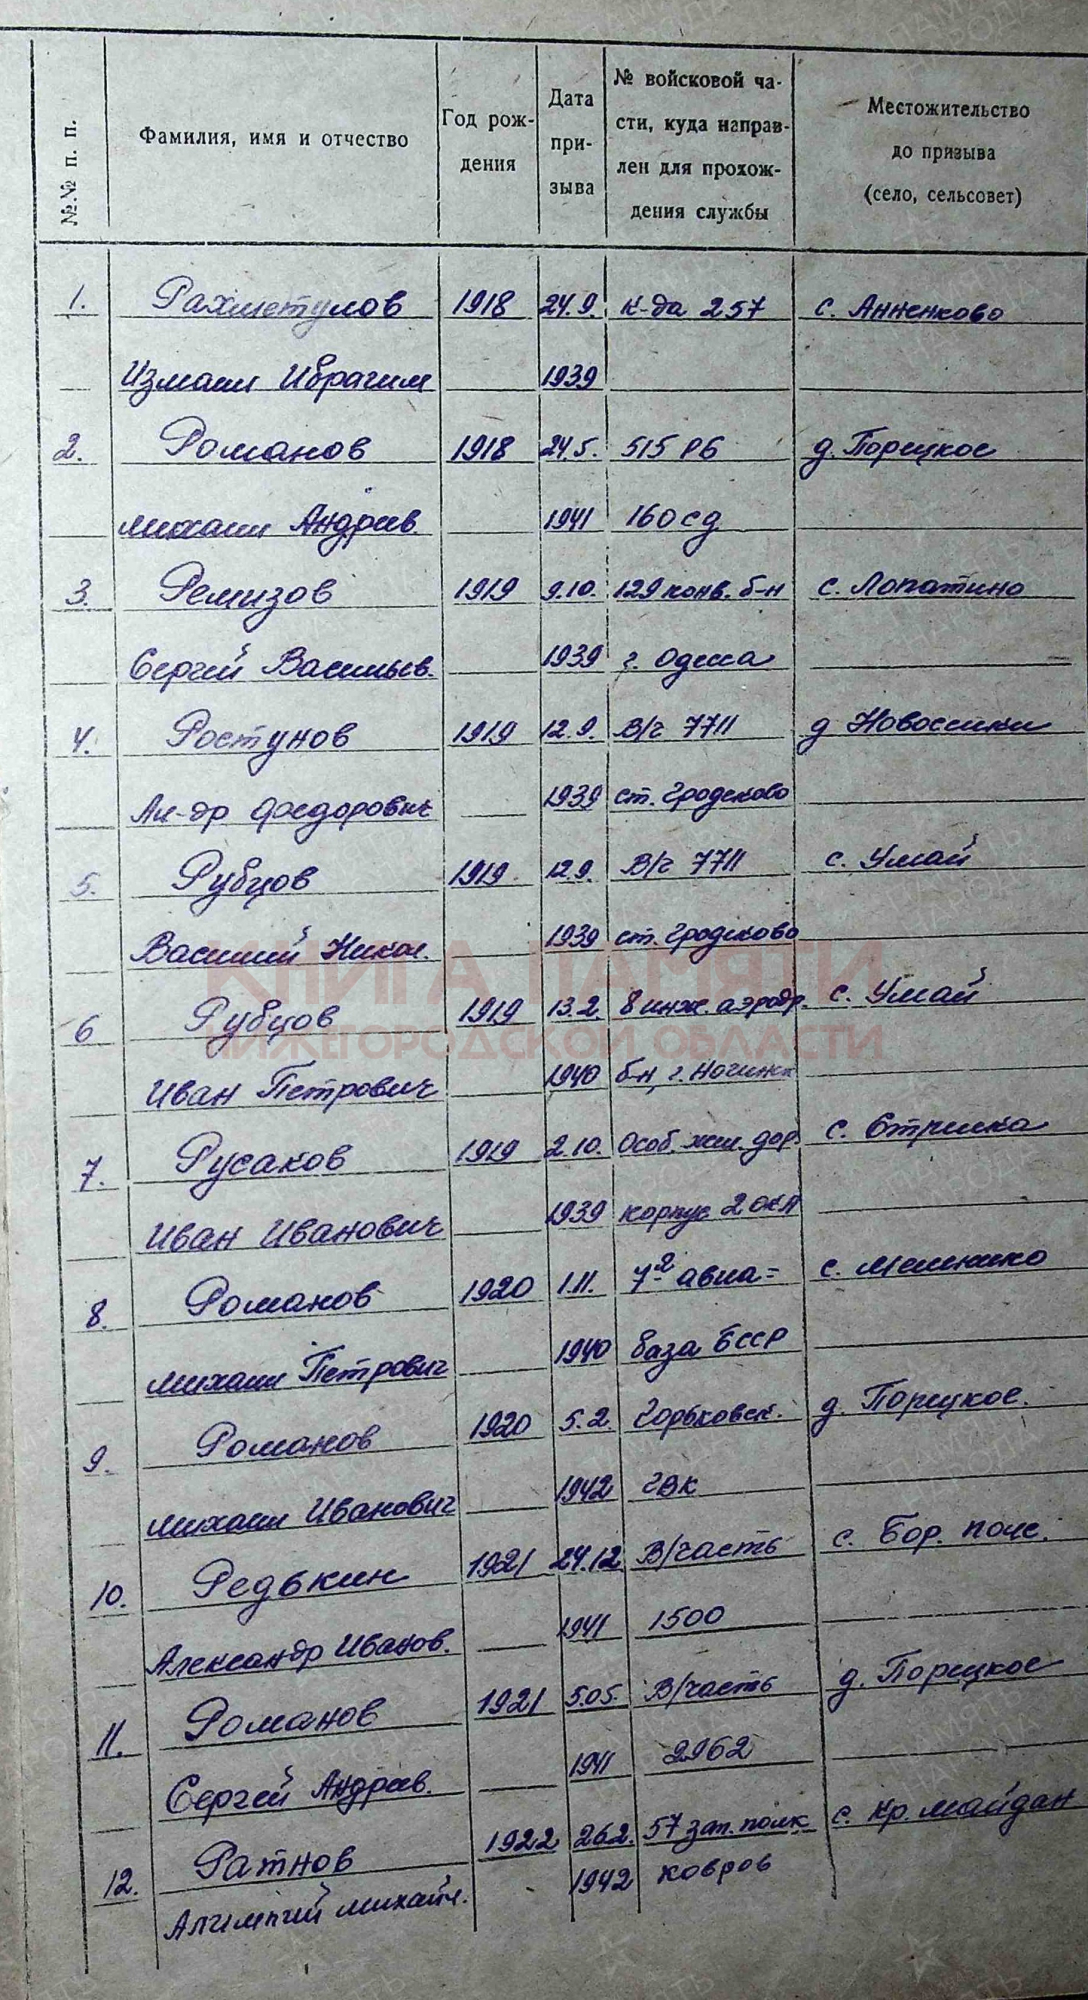 №№ п. п.
Фамилия, имя и отчество
Год рож-
дения
Дата
при-
зыва
№ войсковой ча-
сти, куда направ-
лен для прохож-
дения службы
Местожительство
до призыва
(село, сельсовет)
1. Рахметулов 1918 24.9. к-да 257 с. Анненково
Измаил Ибрагим 1939
2. Романов 1918 24.5. 515 РБ д. Порецкое
Михаил Андреев. 1941 160 сд
3. Ремизов 1919 9.10. 129 конв. б-н с. Лопатино
Сергей Васильев. 1939 г. Одесса
4. Ростунов 1919 12.9. В/ч 7711 д Новоселки
Ал-др Федорович 1939 ст. Гродеково
5. Рубцов 1919 12.9. В/ч 7711 с. Умай
Василий Никол. 1939 ст. Гродеково
КНИГА ПАМЯТИ
6 Рубцов 1919 13.2. 8 инж. аэродр. с. Умай
НИЖЕГОРОДСКОЙ ОБЛАСТИ
Иван Петрович 1940 б-н, г. Ногинск
7. Русаков 1919 2.10. Особ. жел. дор. с. Стрелка
Иван Иванович 1939 корпус 2
8. Романов 1920 1.11. авиа= с.
Михаил Петрович 1940 база БССР
9. Романов 1920 5.2. Горьковск. д. Порецкое.
Михаил Иванович 1942 ГВК
10. Редькин 1921 24.12 В/часть с. Бор. поле.
Александр Иванов. 1941 1500
11. Романов 1921 5.05. В/часть д. Порецкое
Сергей Андреев. 1941 2962
12. Ратнов 1922 26.2. 57 зап. полк с. Кр. Майдан
Алимпий Михайл. 1942 Ковров